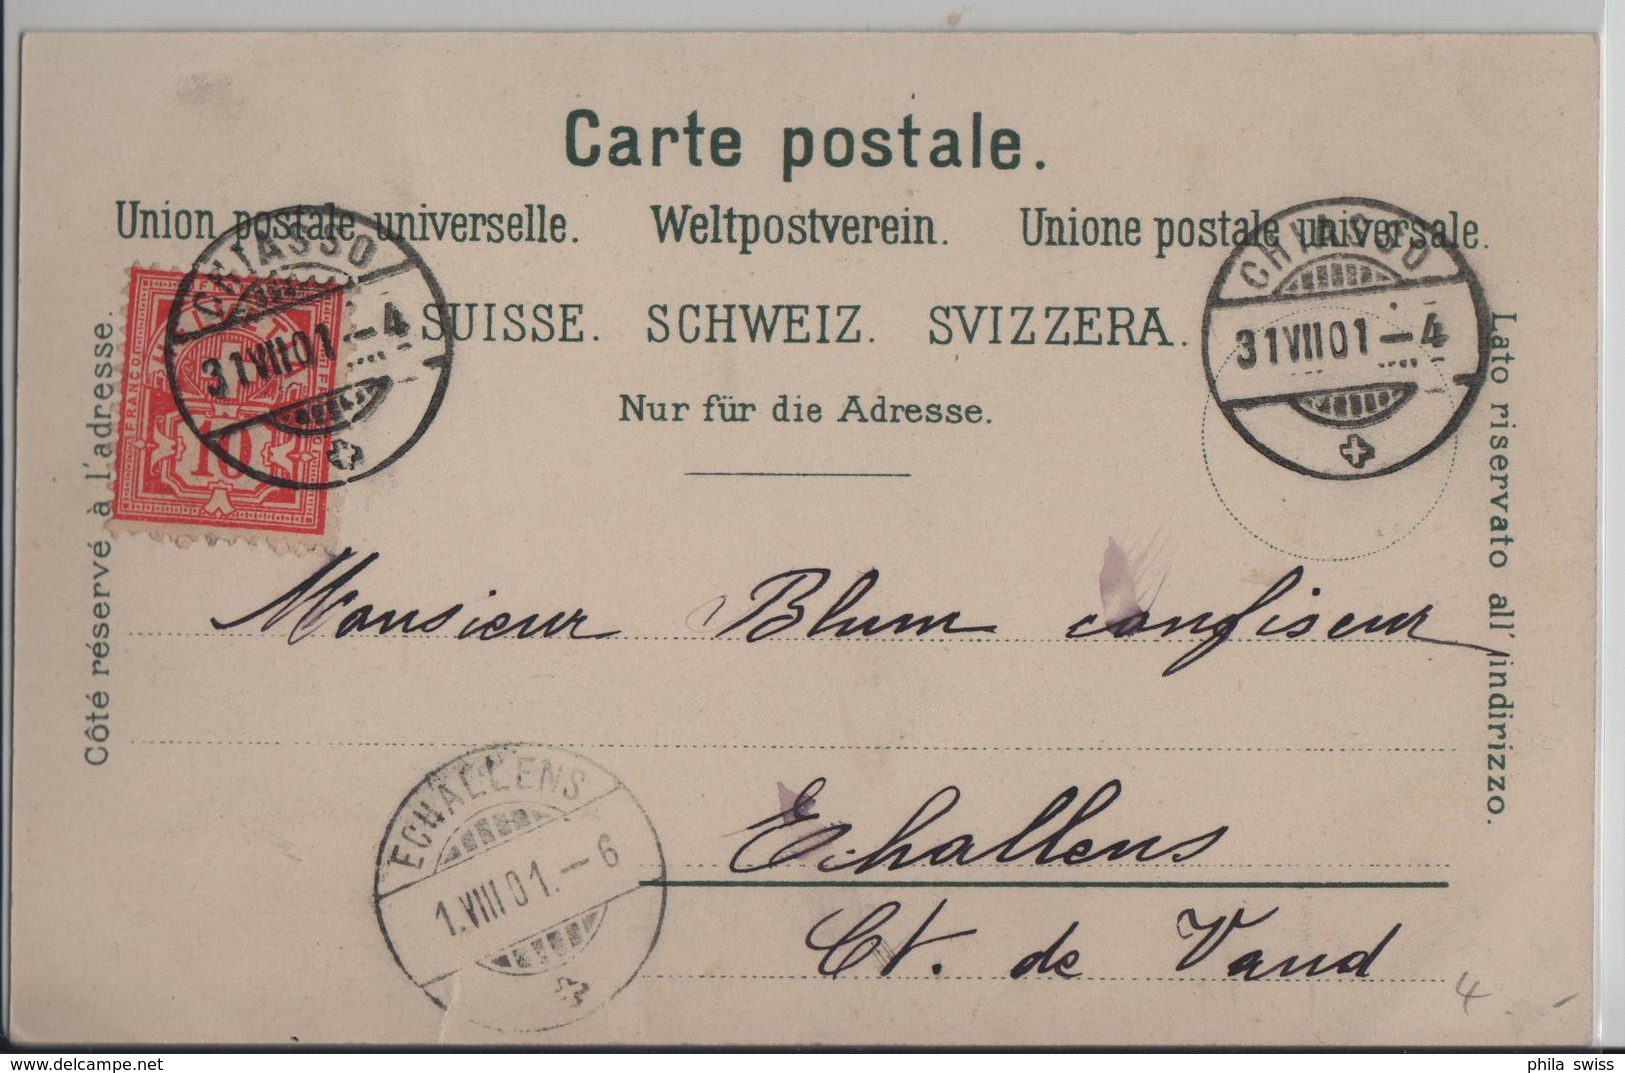 Carte postale.
Union postale universelle. Weltpostverein. Unione postale universale.
SUISSE. SCHWEIZ. SVIZZERA.
Nur für die Adresse.
Côté réservé à l'adresse.
Lato riservato all'indirizzo.
CHIASSO
31 VII 01 – 4
CHIASSO
31 VII 01 – 4
FRANCO
10
Monsieur Blum confiseur
Echallens
Ct. de Vaud
ECHALLENS
1. VIII 01. – 6
4 -
delcampe.net
phila_swiss